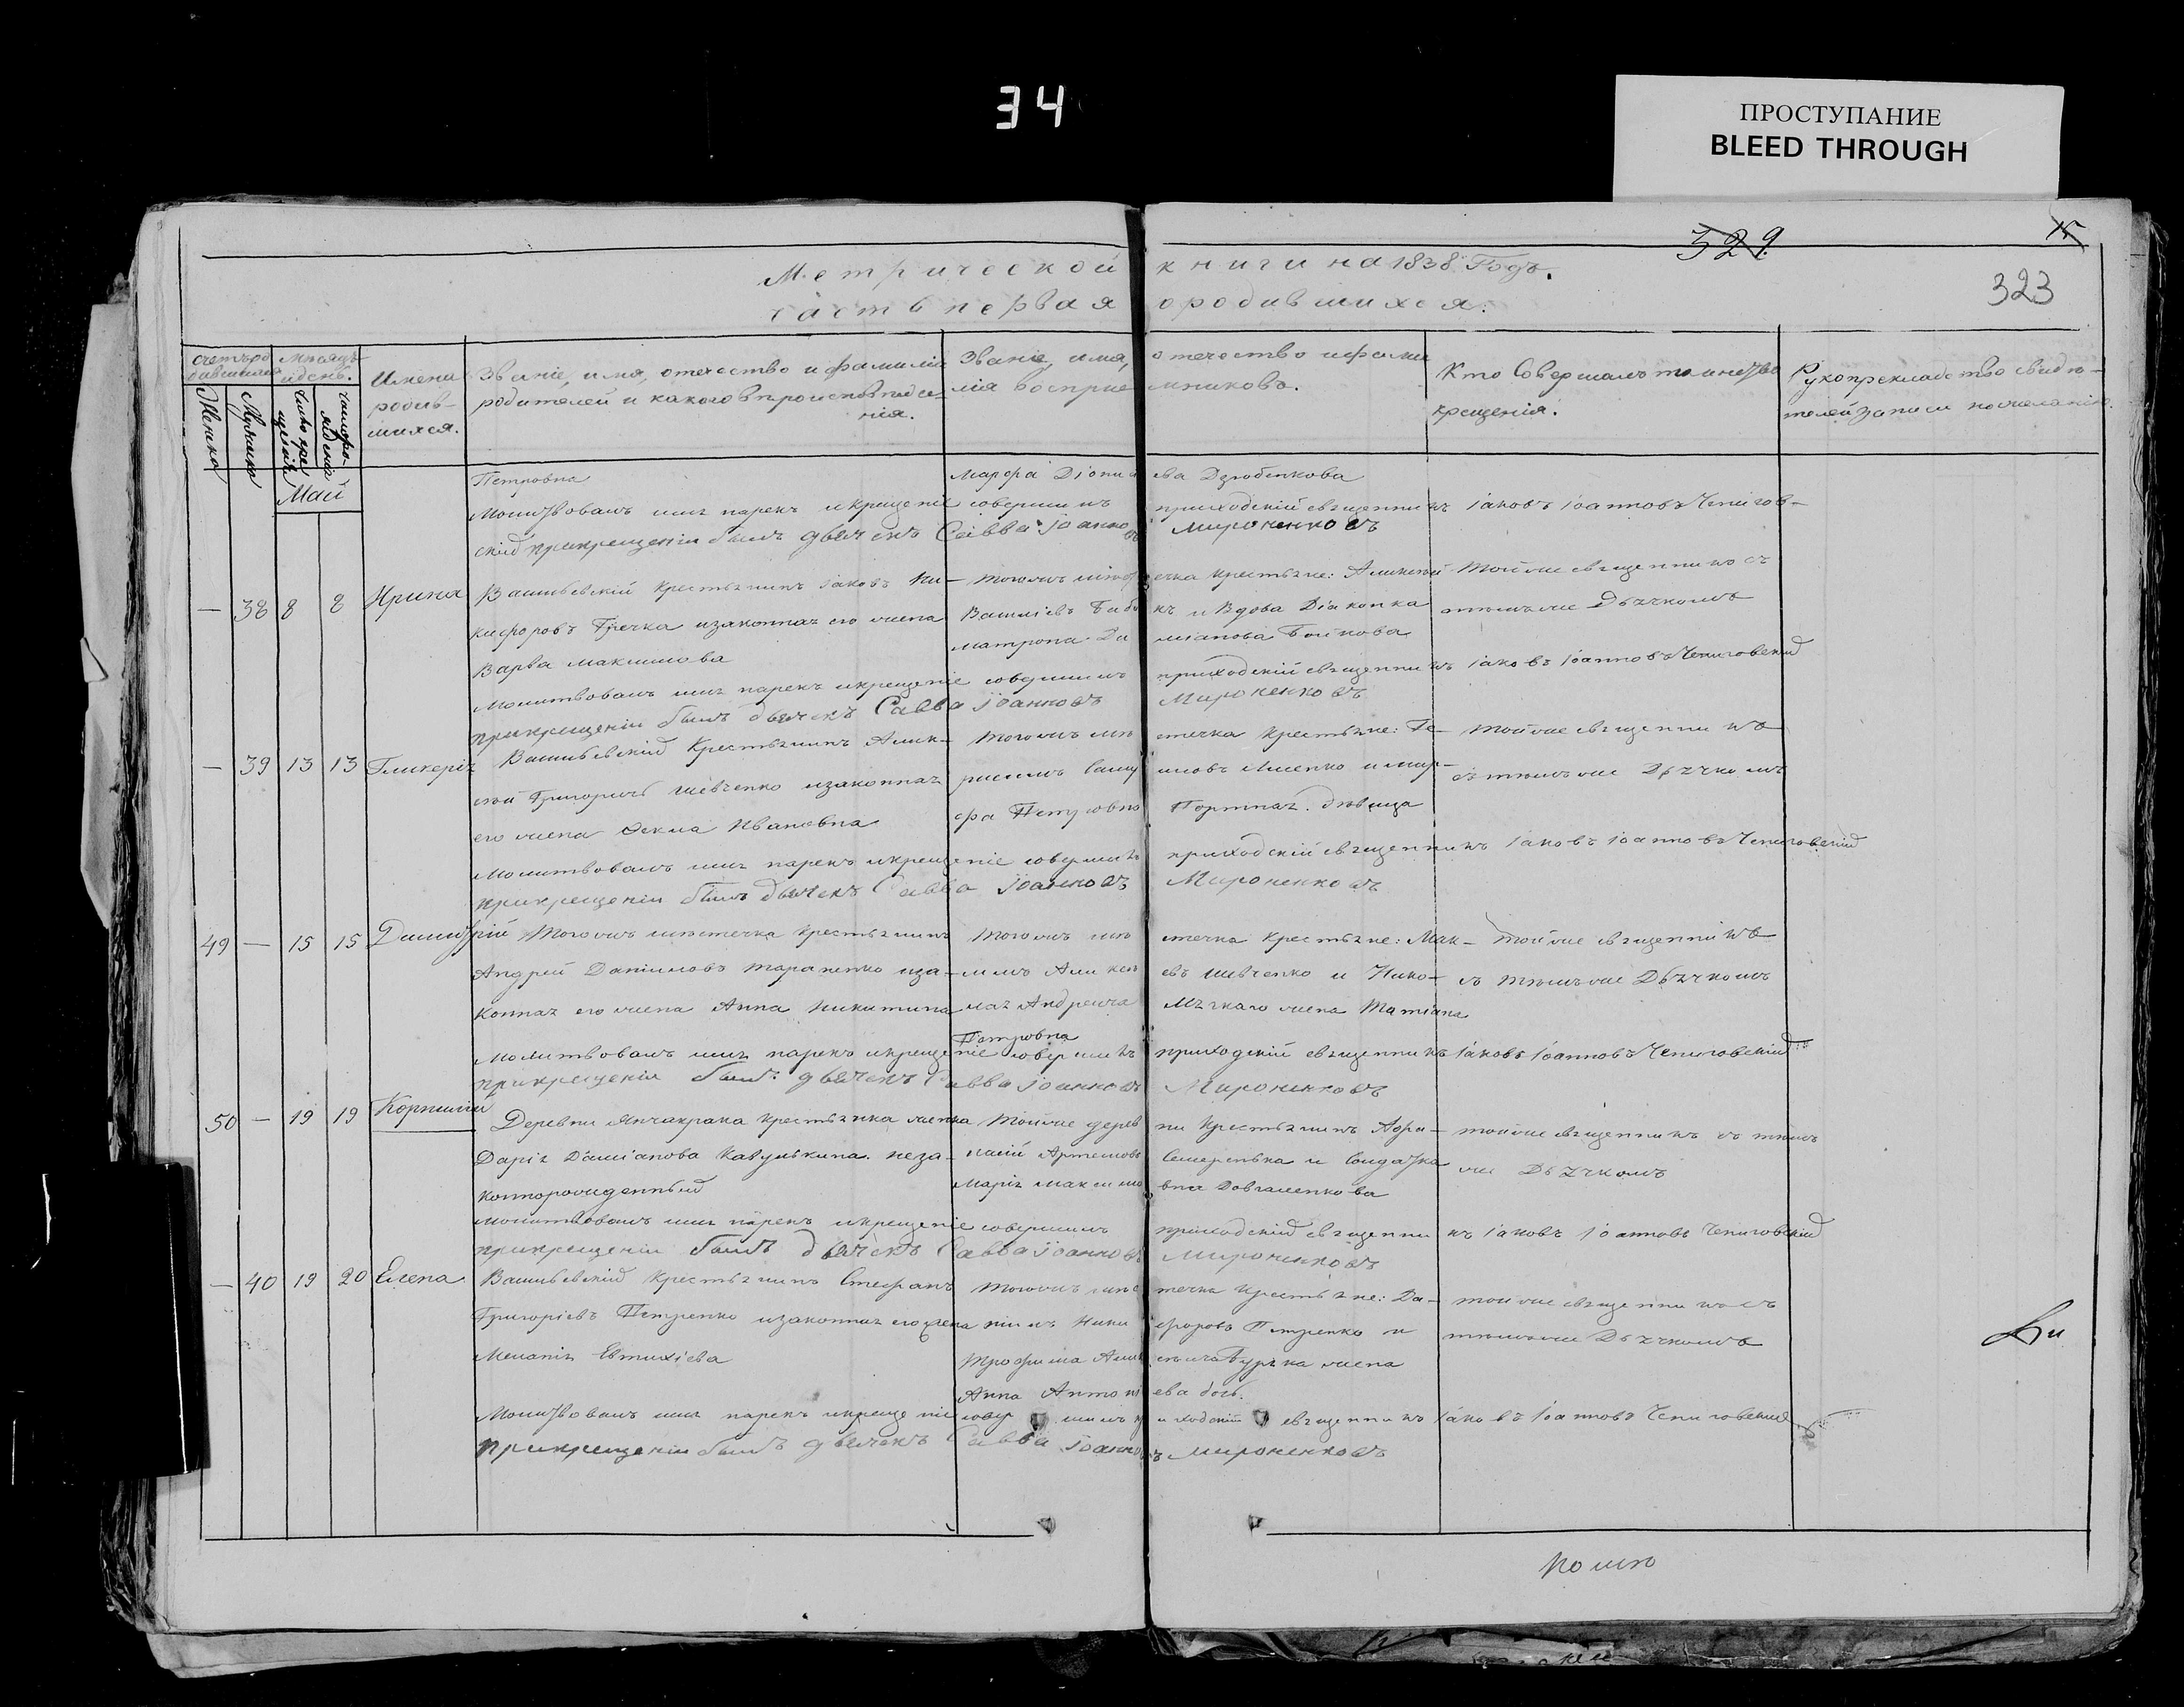 34
ПРОСТУПАНИЕ
BLEED THROUGH
329
15
323
Метрической книги на 1838 Годъ.
часть первая ородившихся.
счетъ род
мѣсяцъ
и день.
Имена
родив-
шихся.
Званіе, имя, отечество и фамилія
родителей и какого вѣроисповѣда-
нія.
Званіе, имя, отечество и фами
лія воспріемниковъ.
Кто Совершалъ таинство
крещенія.
Рукоприкладство свидѣ-
телей записи по желанію.
Женска
Мужска
Май
Петровна
Марфа Діонисіева Дзюбенкова
Молитвовалъ имя нарекъ икрещеніе совершилъ приходскій священникъ Іаковъ Іоанновъ Чепигов-
скій прикрещеніи былъ дьячекъ Савва Іоанновъ Мироненковъ
— 38 8 8 Ирина
Васильевскій Крестьянинъ Іаковъ Ни-
кифоровъ Гречка изаконная его жена
Варва Максимова
тогожъ мѣстечка крестьяне: Алексей
Василіевъ и Вдова Діаконка
матрона Даміанова Бойкова
тойже священникъ съ
тѣмъже Дьячкомъ
Молитвовалъ имя нарекъ икрещеніе совершилъ приходскій священникъ Іаковъ Іоанновъ Чепиговскій
прикрещеніи былъ дьячекъ Савва Іоанновъ Мироненковъ
— 39 13 13 Гликерія
Васильевскій Крестьянинъ Алек-
сѣй Григорьевъ Шевченко изаконная
его жена Фекла Ивановна
тогожъ мѣстечка крестьяне: Ге-
расимъ Лисенко и мар-
фа Петровна Портная. дѣвица
тойже священникъ
сътѣмъже Дьячкомъ
Молитвовалъ имя нарекъ икрещеніе совершилъ приходскій священникъ Іаковъ Іоанновъ Чепиговскій
прикрещеніи былъ дьячекъ Савва Іоанновъ Мироненковъ
49 — 15 15 Димитрій
Тогожъ мѣстечка крестьянинъ
Андрей Даніиловъ Тараненко иза-
конная его жена Анна Никитина
тогожъ мѣстечка крестьяне: Мак-
симъ Алексѣевъ Шевченко и Нико-
лая Андреича жена Татіана
Петровна
тойже священникъ
съ тѣмъже Дьячкомъ
Молитвовалъ имя нарекъ икрещеніе совершилъ приходскій священникъ Іаковъ Іоанновъ Чепиговскій
прикрещеніи былъ дьячекъ Савва Іоанновъ Мироненковъ
50 — 19 19 Корнилій
Деревни Янчакрака крестьянка женка
Дарія Даміанова Кавулькина. неза-
коннорожденный
тойже деревни крестьянинъ Афа-
насій Артемовъ Семеренька и Солдатка
Марія Максимовна Довгаленкова
тойже священникъ съ тѣмъ
же Дьячкомъ
Молитвовалъ имя нарекъ икрещеніе совершилъ приходскій священникъ Іаковъ Іоанновъ Чепиговскій
прикрещеніи былъ дьячекъ Савва Іоанновъ Мироненковъ
— 40 19 20 Елена
Васильевскій Крестьянинъ Стефанъ
Григоріевъ Петренко изаконная его жена
Меланія Евтихіева
тогожъ мѣстечка крестьяне: Да-
ніилъ Никифоровъ Петренко и
Трофима жена
Анна Антоніева дочь.
тойже священникъ съ
тѣмъже Дьячкомъ
Молитвовалъ имя нарекъ икрещеніе совершилъ приходскій священникъ Іаковъ Іоанновъ Чепиговскій
прикрещеніи былъ дьячекъ Савва Іоанновъ Мироненковъ